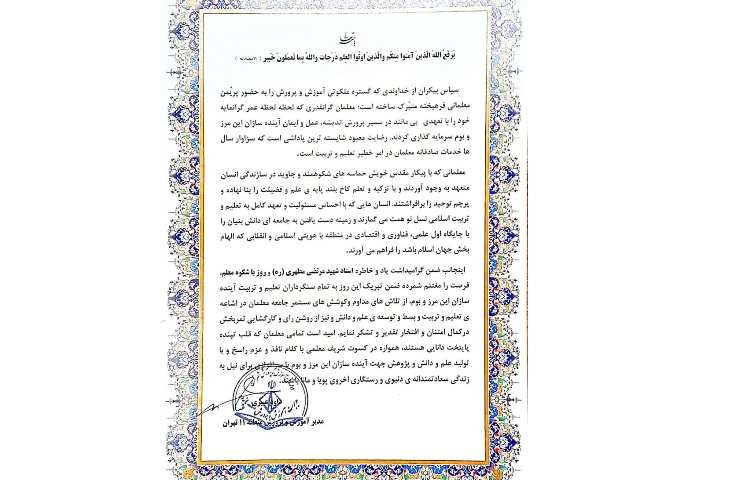 باسمه تعالی
یَرْفَعِ اللهُ الَّذینَ آمَنُوا مِنکُم والَّذینَ اُوتُوا العِلمَ دَرَجات واللهُ بِما تَعمَلُونَ خَبیر
سپاس بیکران از خداوندی که گستره ملکوتی آموزش و پرورش را به حضور پریُمن
معلمانی فرهیخته متبرک ساخته است؛ معلمان گرانقدری که لحظه لحظه عمر گرانمایه
خود را با تعهدی بی مانند در مسیر پرورش اندیشه، عمل و ایمان آینده سازان این مرز
و بوم سرمایه گذاری کردند. رضایت معبود شایسته ترین پاداشی است که سزاوار سال
ها خدمات صادقانه معلمان در امر خطیر تعلیم و تربیت است.
معلمانی که با پیکار مقدس خویش حماسه های شکوهمند و جاوید در سازندگی انسان
متعهد به وجود آوردند و با تزکیه و تعلم کاخ بلند پایه ی علم و فضیلت را بنا نهاده و
پرچم توحید را برافراشتند. انسان هایی که با احساس مسئولیت و تعهد کامل به تعلیم و
تربیت اسلامی نسل نو همت می گمارند و زمینه دست یافتن به جامعه ای دانش بنیان را
با جایگاه اول علمی، فناوری و اقتصادی در منطقه با هویتی اسلامی و انقلابی که الهام
بخش جهان اسلام باشد را فراهم می آورند.
اینجانب ضمن گرامیداشت یاد و خاطره استاد شهید مرتضی مطهری (ره) و روز با شکوه معلم،
فرصت را مغتنم شمرده ضمن تبریک این روز به تمام سنگرداران تعلیم و تربیت آینده
سازان این مرز و بوم، از تلاش های مداوم وکوشش های مستمر جامعه معلمان در اشاعه
ی تعلیم و تربیت و بسط و توسعه ی علم و دانش و نیز از روشن رای و کارگشایی ثمربخش
درکمال امتنان و افتخار تقدیر و تشکر نمایم. امید است تمامی معلمان که قلب تپنده
پایتخت دانایی هستند، همواره در کسوت شریف معلمی با کلام نافذ و عزم راسخ و با
تولید علم و دانش و پژوهش جهت آینده سازان این مرز و بوم برای نیل به
زندگی سعادتمندانه ی دنیوی و رستگاری اخروی پویا و مانا باشند.
مدیر آموزش و پرورش منطقه ۱۱ تهران